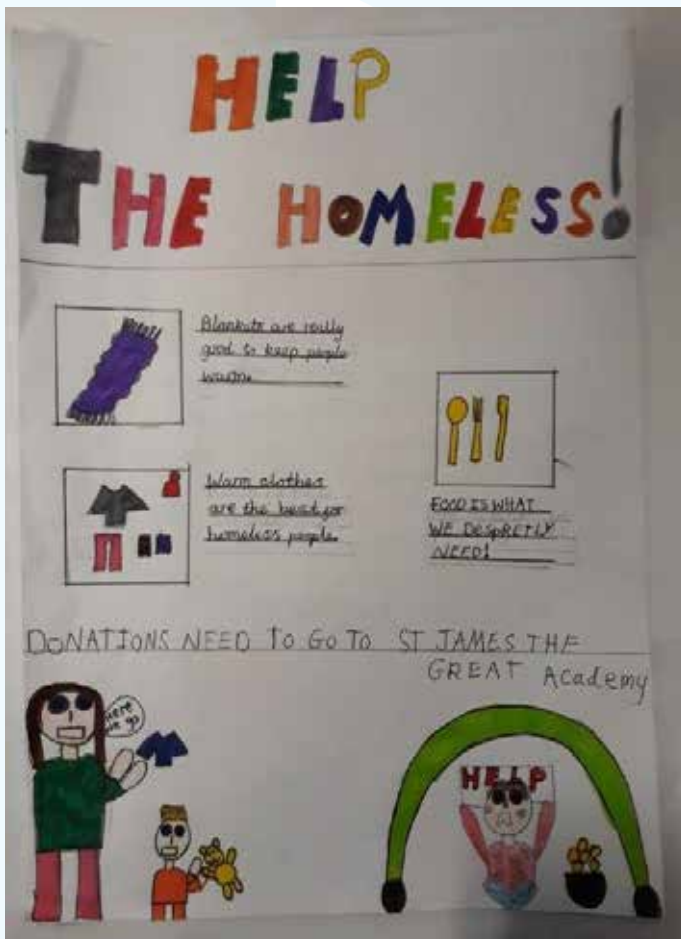 HELP
THE HOMELESS!
Blankets are really
good to keep people
warm.
Warm clothes
are the best for
homeless people.
FOOD IS WHAT
WE DESPRETLY
NEED!
DONATIONS NEED TO GO TO ST JAMES THE
GREAT Academy
Here
we go
HELP